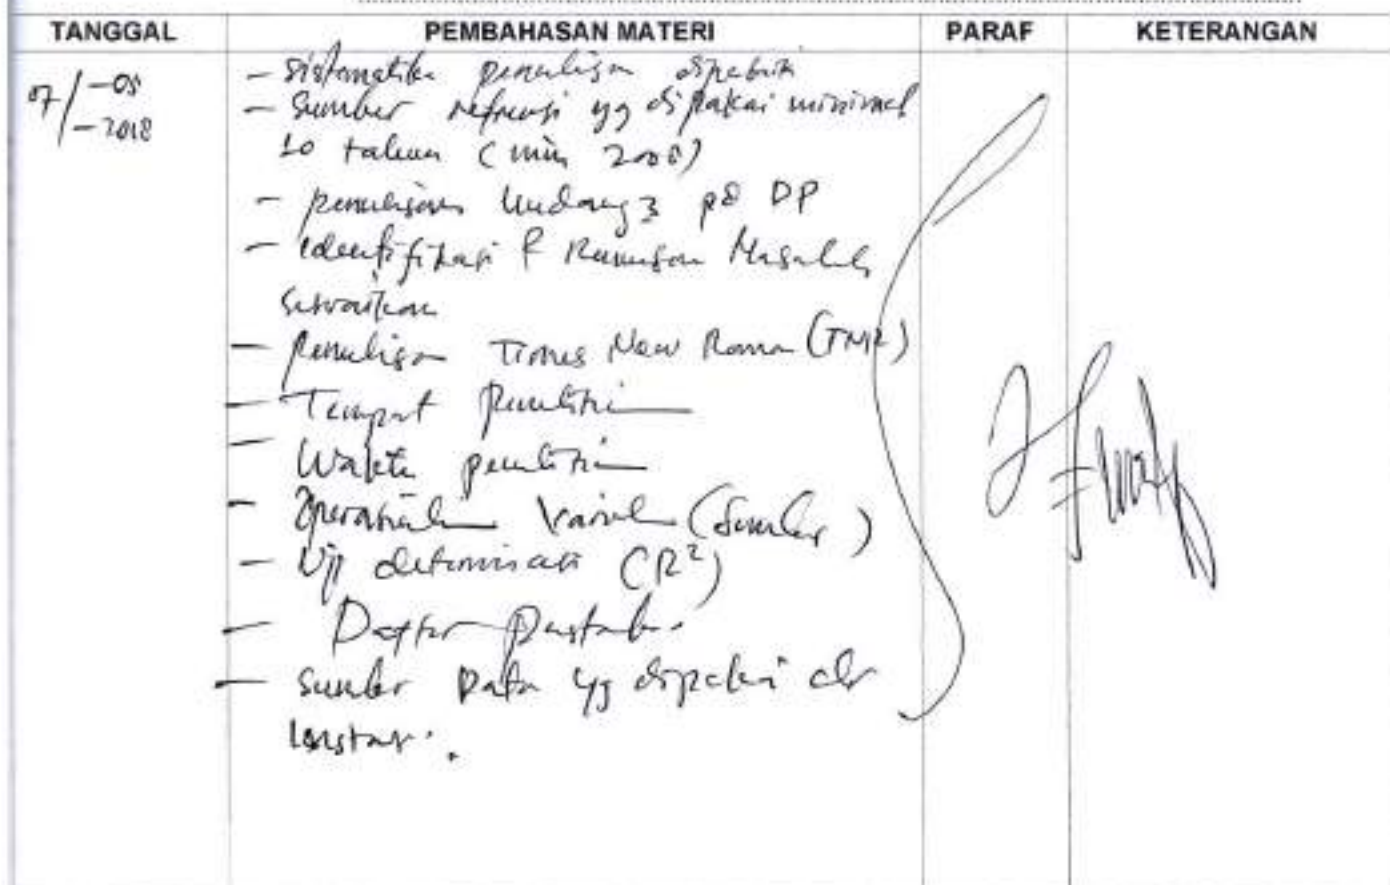 TANGGAL PEMBAHASAN MATERI PARAF KETERANGAN
07/-05
-2018
- Sistematika penulisan diperbaiki
- Sumber referensi yg dipakai minimal
10 tahun (min 2008)
- penulisan Undang2 pd DP
- Identifikasi & Rumusan Masalah
sesuaikan
- penulisan Times New Roman (TNR)
- Tempat penelitian
- Waktu penelitian
- Operasional Variabel (Sumber)
- Uji determinasi (R²)
- Daftar Pustaka.
- Sumber Data yg dipakai